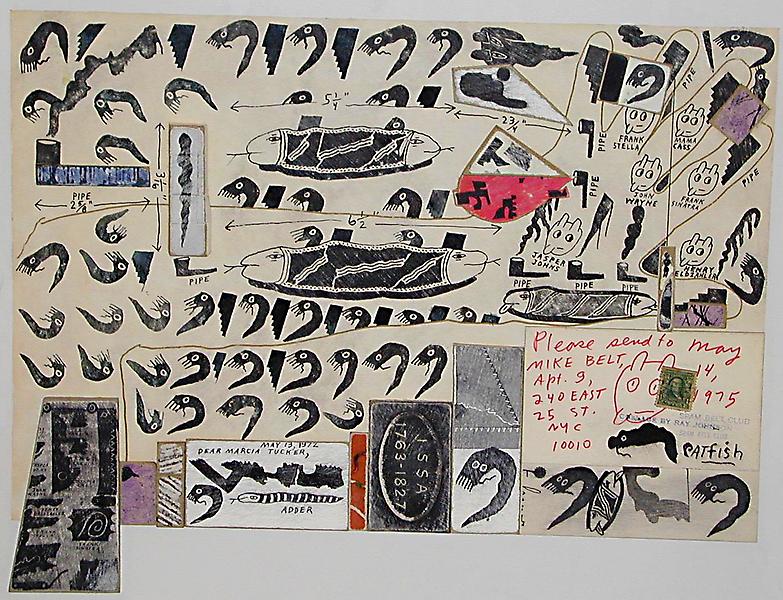 PIPE
5 1/4"
2 3/4
PIPE
FRANK
STELLA
MAMA
CASS
PIPE
PIPE
JOHN
WAYNE
FRANK
SINATRA
PIPE
2 5/8"
6 1/2"
PIPE
JASPER
JOHNS
PIPE
PIPE
PIPE
HENRY
Please send to
MIKE BELT,
Apt. 9,
240 EAST
25 ST.
NYC
10010
May
14,
1975
SPAM BELT CLUB
BY RAY JOHNSON
PATFISH
MAY 13, 1972
DEAR MARCIA TUCKER,
ADDER
1763-1827